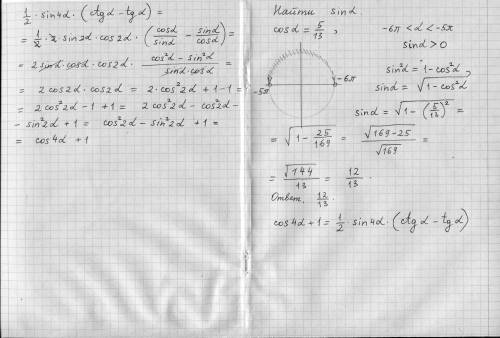 1/2 · sin4α · (ctgα - tgα) =
= 1/2 · 2 · sin2α · cos2α · (cosα/sinα - sinα/cosα) =
= 2 sinα · cosα · cos2α · (cos²α - sin²α)/(sinα · cosα) =
= 2 cos2α · cos2α = 2 · cos²2α + 1 - 1 =
= 2 cos²2α - 1 + 1 = 2 cos²2α - cos²2α -
- sin²2α + 1 = cos²2α - sin²2α + 1 =
= cos4α + 1
Найти sinα
cosα = 5/13, -6π < α < -5π
sinα > 0
-5π -6π
sin²α = 1 - cos²α,
sinα = √(1 - cos²α)
sinα = √(1 - (5/13)²) =
= √(1 - 25/169) = √(169 - 25)/√169 =
= √144/13 = 12/13.
Ответ. 12/13.
cos4α + 1 = 1/2 · sin4α · (ctgα - tgα)